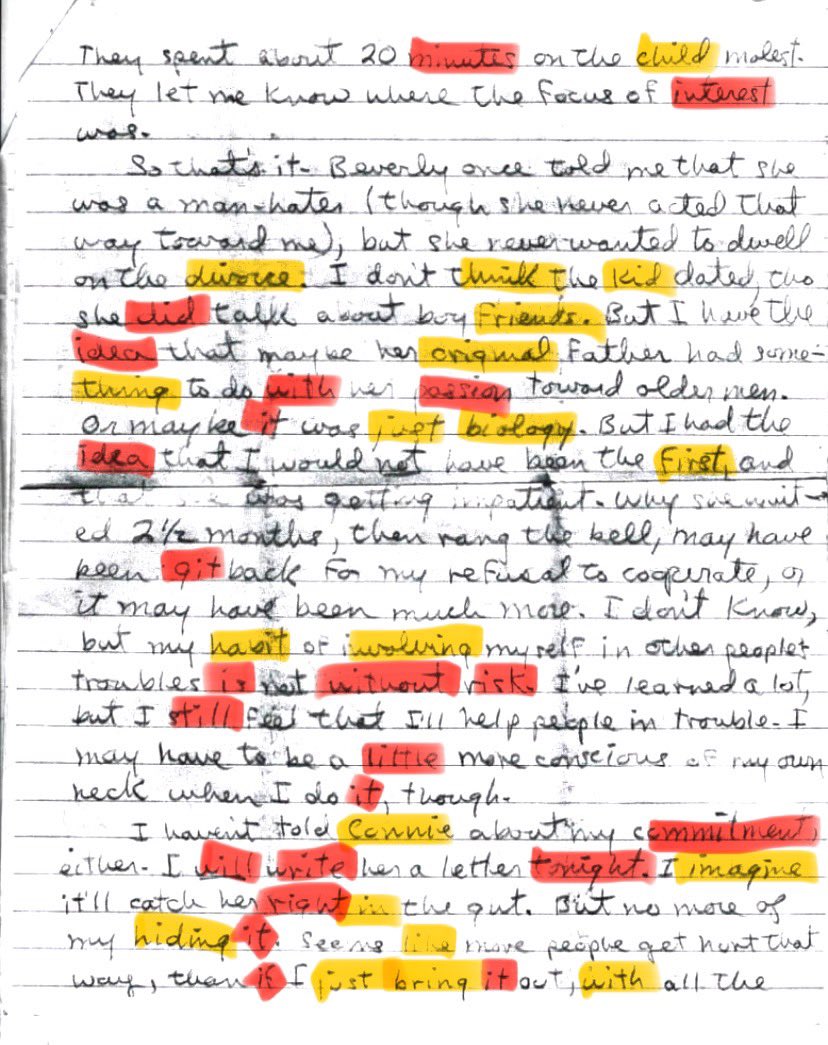 They spent about 20 minutes on the child molest.
They let me know where the focus of interest
was.
So that's it. Beverly once told me that she
was a man-hater (though she never acted that
way toward me), but she never wanted to dwell
on the divorce. I don't think the kid dated, tho
she did talk about boy friends. But I have the
idea that maybe her original father had some-
thing to do with her passion toward older men.
Or maybe it was just biology. But I had the
idea that I would not have been the first, and
that she was getting impatient. Why she wait-
ed 2½ months, then rang the bell, may have
been git back for my refusal to cooperate, or
it may have been much more. I don't know,
but my habit of involving myself in other peoples
troubles is not without risk. I've learned a lot,
but I still feel that I'll help people in trouble. I
may have to be a little more conscious of my own
neck when I do it, though.
I haven't told Connie about my commitment,
either. I will write her a letter tonight. I imagine
it'll catch her right in the gut. But no more of
my hiding it. Seems like more people get hurt that
way, than if I just bring it out, with all the